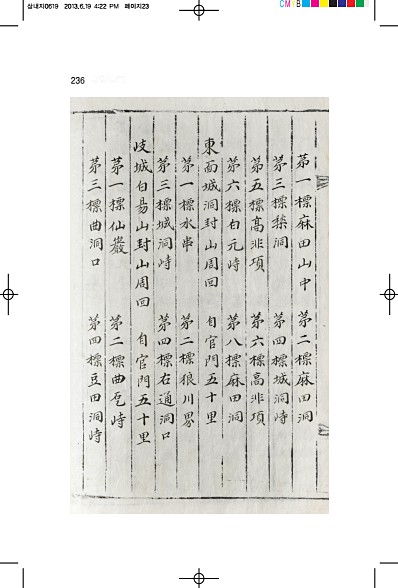 삼내지0619 2013.6.19 4:22 PM 페이지23
CMYB
236
第一標麻田山中 第二標麻田洞
第三標築洞 第四標城洞峙
第五標高非項 第六標高非項
第六標白元峙 第八標麻田洞
東面城洞封山周回 自官門五十里
第一標水串 第二標狼川界
第三標城洞峙 第四標右道洞口
岐城白易山封山周回 自官門五十里
第一標仙巖 第二標曲峙
第三標曲洞口 第四標豆田洞峙